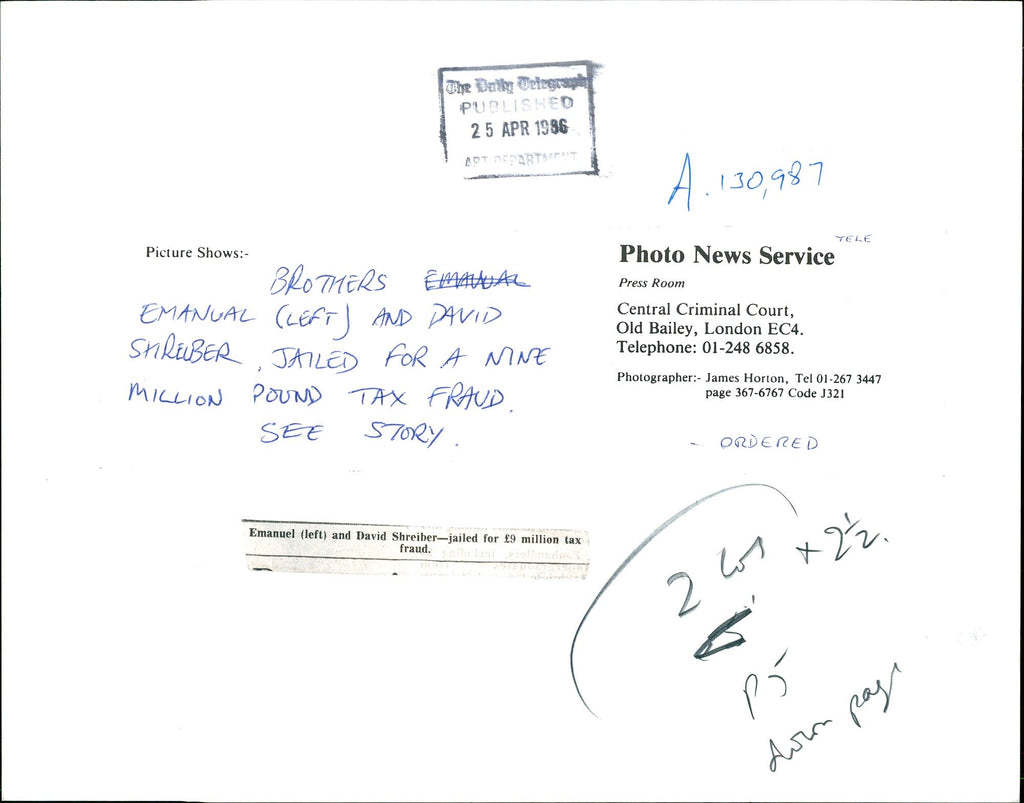 The Daily Telegraph
PUBLISHED
25 APR 1986
ART DEPARTMENT
A. 130,987
TELE
Picture Shows:-
BROTHERS EMANUAL
EMANUAL (LEFT) AND DAVID
SHREIBER, JAILED FOR A NINE
MILLION POUND TAX FRAUD.
SEE STORY.
Photo News Service
Press Room
Central Criminal Court,
Old Bailey, London EC4.
Telephone: 01-248 6858.
Photographer:- James Horton, Tel 01-267 3447
page 367-6767 Code J321
- ORDERED
Emanuel (left) and David Shreiber—jailed for £9 million tax
fraud.
2 cols + 2½.
P5
down page